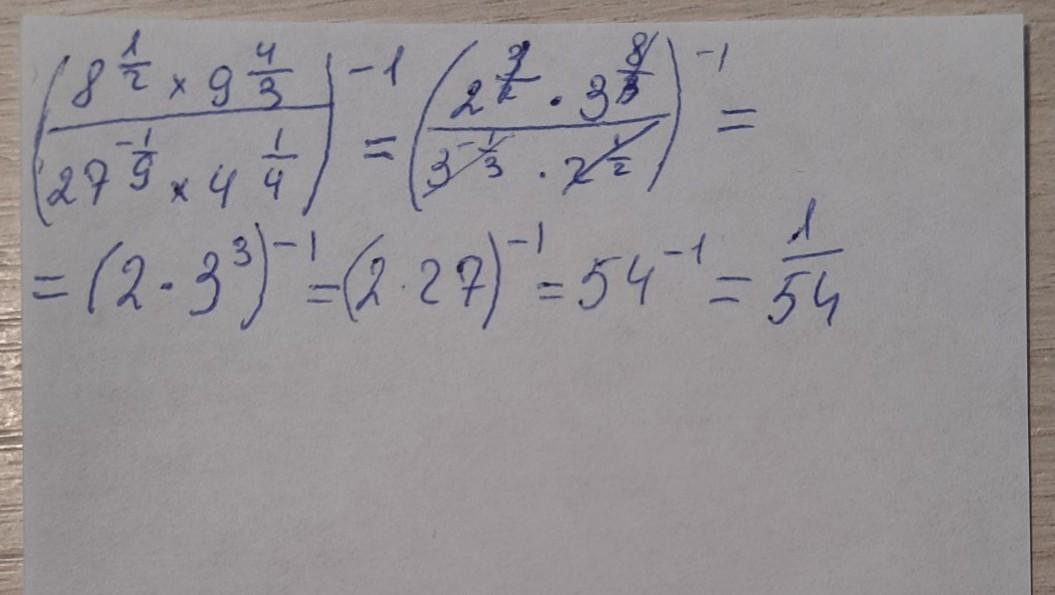 (8^{1/2} × 9^{4/3} / 27^{-1/9} × 4^{1/4})^{-1} = (2^{3/2} · 3^{8/3} / 3^{-1/3} · 2^{1/2})^{-1} =
= (2 · 3^3)^{-1} = (2 · 27)^{-1} = 54^{-1} = 1/54